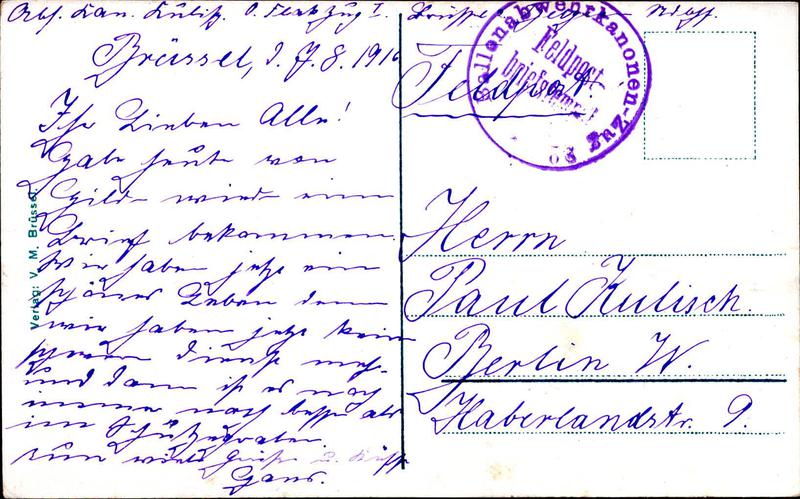 Abs. Kan. Kulisch
Brüssel, d. 7.8.1916
Ihr Lieben Alle!
Habe heute von
Hilde wieder einen
Brief bekommen.
Wir haben jetzt ein
schönes Leben denn
wir haben jetzt kein
schweren Dienst mehr
und dann ist es noch
immer noch besser als
im Schützengraben.
nun viele Grüße u. Küsse
Hans.
Verlag: V. M. Brüssel.
Ballonabwehrkanonen-Zug
Feldpost-
briefstempel
Feldpost.
Herrn
Paul Kulisch.
Berlin W.
Haberlandstr. 9.